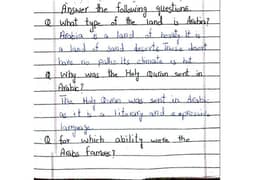 Answer the following questions.
Q What type of the land is Arabia?
Arabia is a land of beauty It is
a land of sand deserts These don't
have no paths Its climate is hot
Q Why was the Holy Quran sent in
Arabic?
The Holy Quran was sent in Arabic
as it is a literary and expressive
language
Q for which ability were the
Arabs Famous?